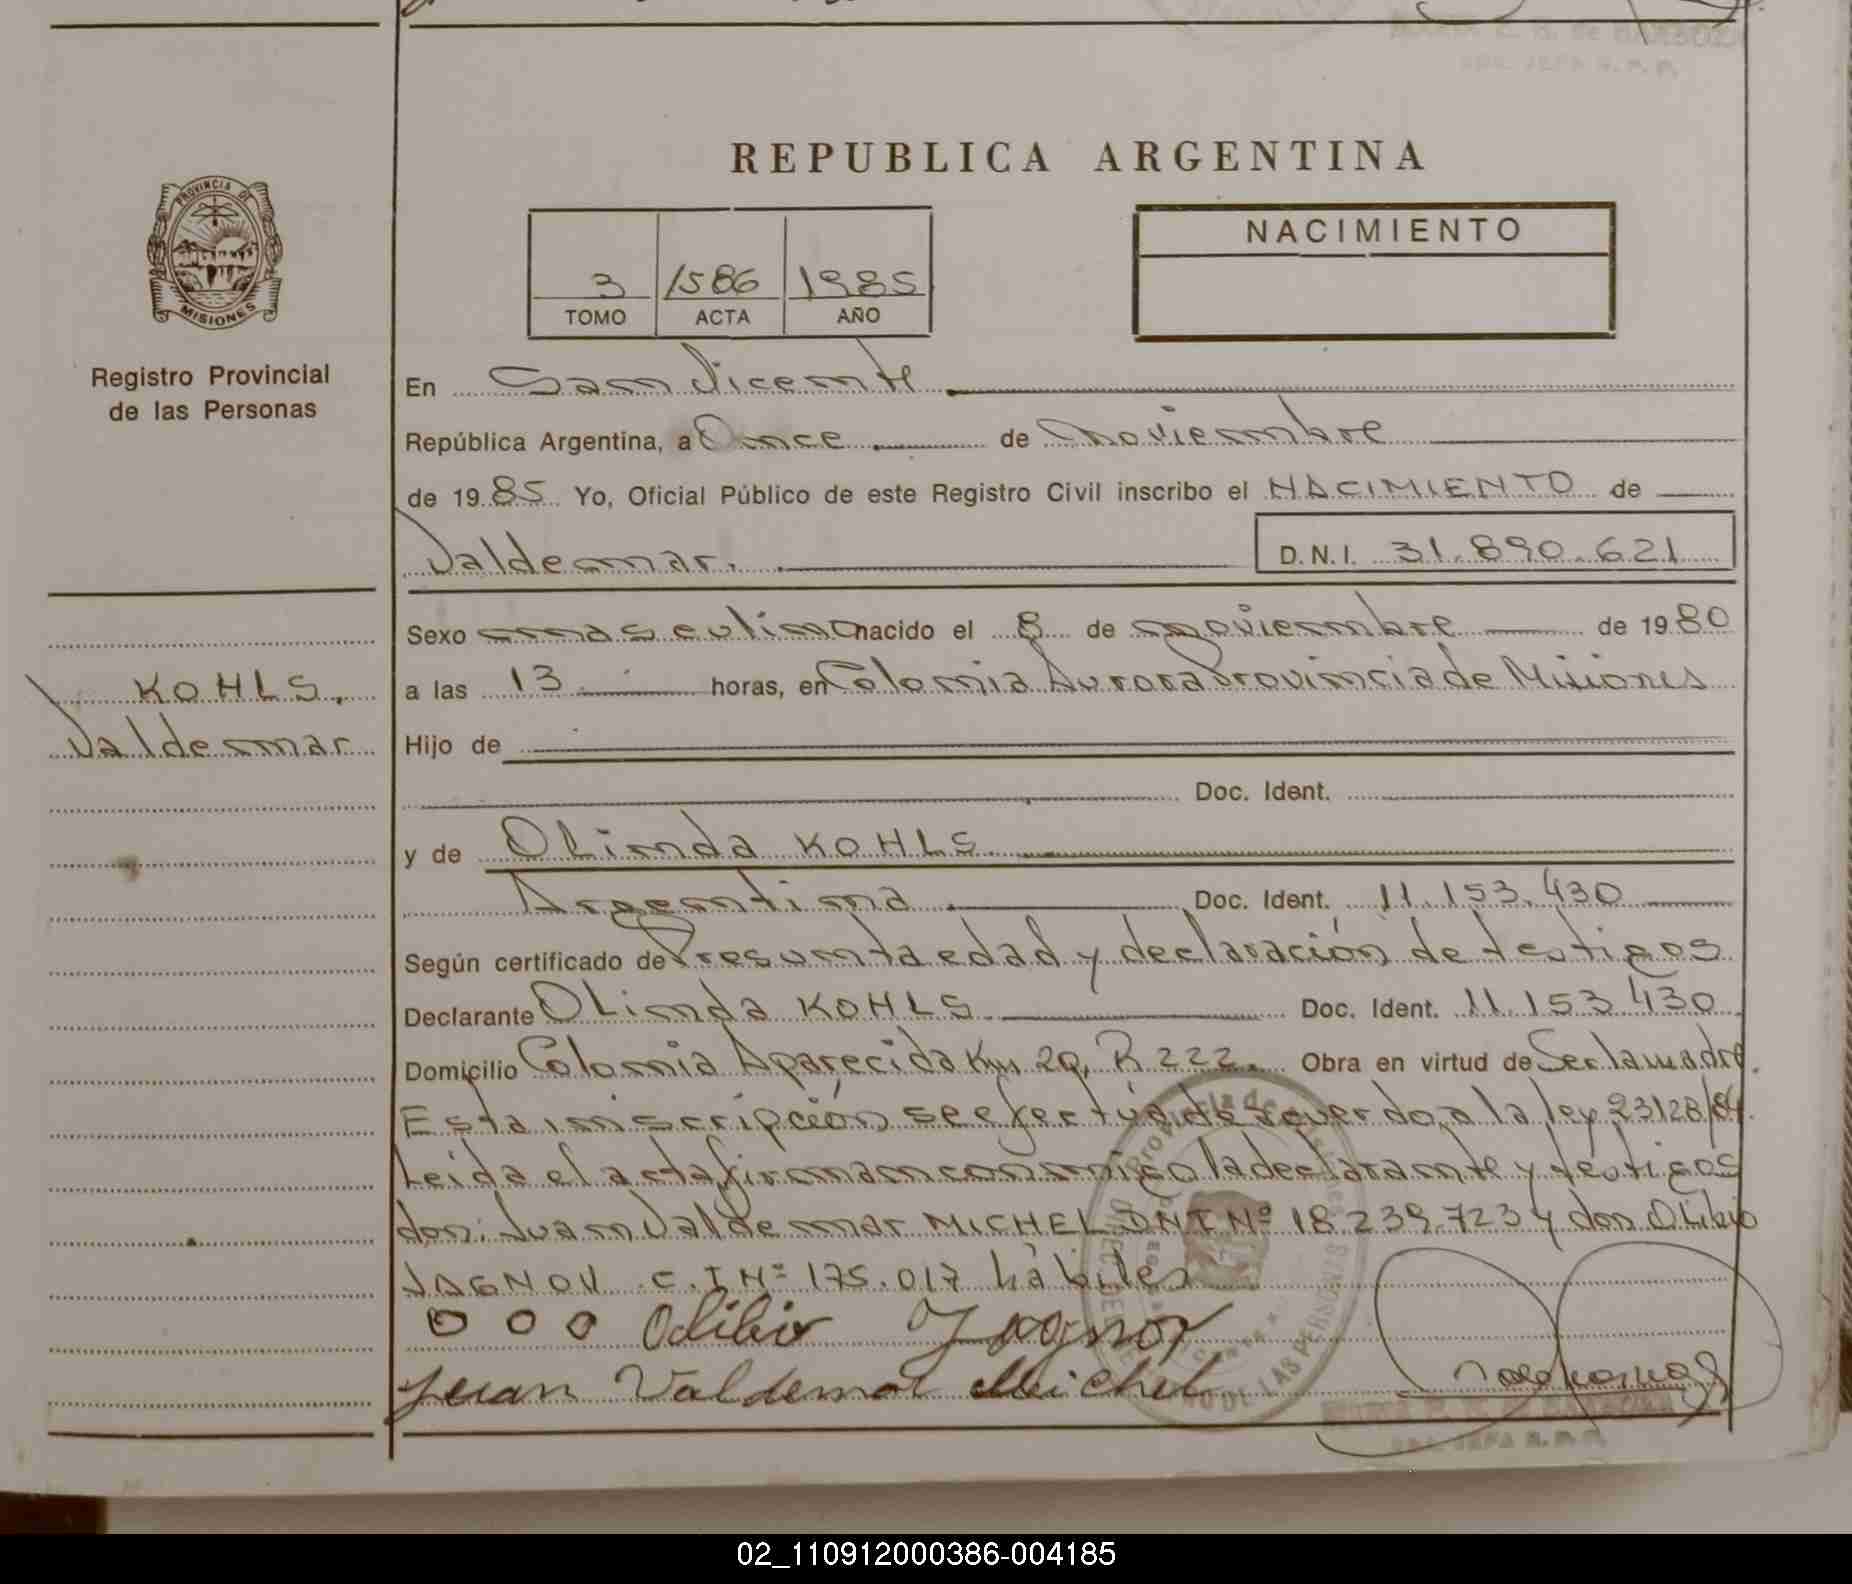 REPUBLICA ARGENTINA
PROVINCIA DE
MISIONES
Registro Provincial
de las Personas
3 1586 1985
TOMO ACTA AÑO
NACIMIENTO
En San Vicente
República Argentina, a Once de noviembre
de 1985 Yo, Oficial Público de este Registro Civil inscribo el NACIMIENTO de
Valdemar.
D.N.I. 31.890.621
KOHLS,
Valdemar
Sexo masculino nacido el 8 de noviembre de 1980
a las 13 horas, en Colonia Aurora Provincia de Misiones
Hijo de
Doc. Ident.
y de OLinda KOHLS.
Argentina Doc. Ident. 11.153.430
Según certificado de Presunta edad y declaración de testigos
Declarante OLinda KOHLS Doc. Ident. 11.153.430
Domicilio Colonia Aparecida Km 20, R 222. Obra en virtud de Ser la madre.
Esta inscripción se efectúa de acuerdo a la ley 23128/84.
Leida el acta firman conmigo la declarante y testigos
don: Juan Valdemar MICHEL DNI Nº 18.239.723 y don OLibio
JAGNOV C.I Nº 175.017 hábiles
Olibio Jagnov
Juan Valdemar Michel
02_110912000386-004185